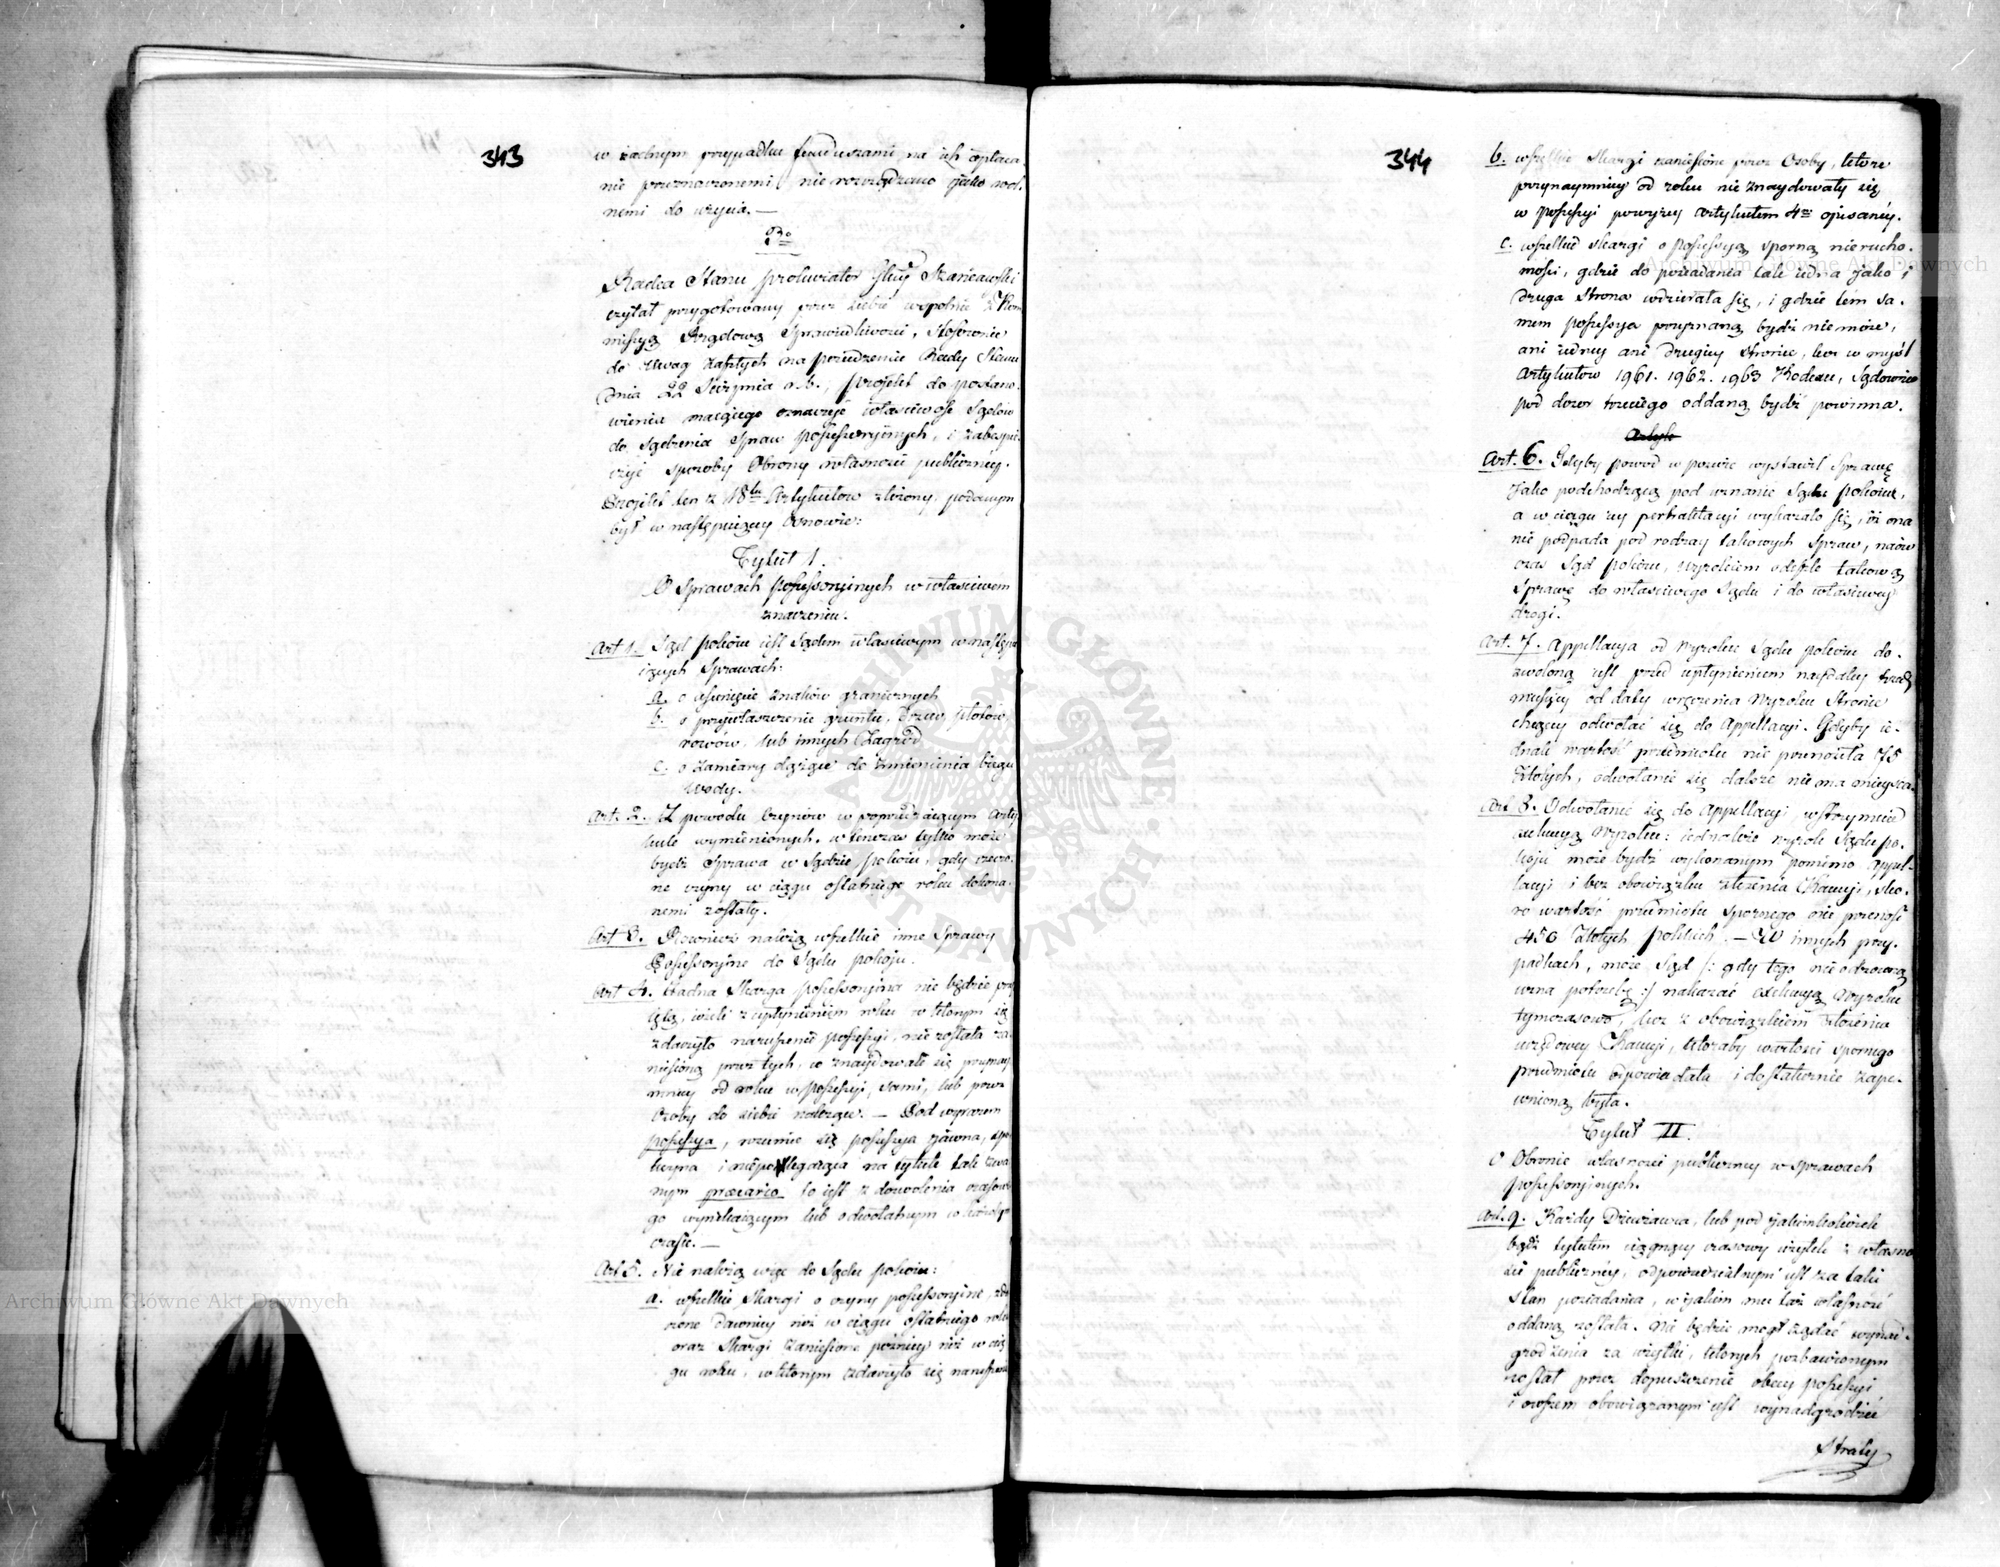 343
w żadnym przypadku funduszami na ich opłace-
nie przeznaczonemi nie rozrządzano jako wol-
nemi do użycia. —
2do
Radca Stanu Prokurator Głuy Szaniawski
czytał przygotowany przez siebie wspólnie z Kom
missyą Rządową Sprawiedliwości, stosownie
do Uwag zaszłych na posiedzeniu Rady Stanu
dnia 22 Sierpnia r. b., projekt do postano-
wienia mającego oznaczyć właściwość Sądów
do sądzenia Spraw possessoryinych, i zabespie-
czyć sposoby Obrony własności publiczney.
Projekt ten z 18tu Artykułów złożony, podanym
był w następuiącey osnowie:
Tytuł 1.
O Sprawach possessoryinych w właściwem
znaczeniu.
Art 1. Sąd pokoiu iest Sądem właściwym w następu
iących Sprawach:
a. o usunięcie znaków granicznych
b. o przywłaszczenie gruntu, drzew, płotów,
rowów, lub innych Zagród
c. o zamiary dążące do zmienienia biegu
wody.
Art. 2. Z powodu czynów w poprzedzaiącym arty
kule wymienionych, w tenczas tylko może
bydź Sprawa w Sądzie pokoiu, gdy rzeczo-
ne czyny w ciągu ostatniego roku dokona-
nemi zostały.
Art 3. Również należą wszelkie inne Sprawy
Possessoryine do Sądu pokoju.
Art 4. Żadna Skarga possessoryina nie będzie przy
iętą, ieżeli z upłynieniem roku w którym się
zdarzyło naruszenie possessyi, nie została za-
niesioną przez tych, co znaydowali się przynay
mniey od roku w possessyi, sami, lub przez
Osoby do siebie należące. — Pod wyrazem
possessya, rozumie się possessya jawna, spo
koyna i niepolegaiąca na tytule tak zwa
nym precario to iest z dozwolenia czasowe
go wynikaiącym lub odwołalnym w każdym
czasie. —
Art 5. Nie należą więc do Sądu pokoiu:
a. wszelkie Skargi o czyny possessoryine, zda
rzone dawniey niż w ciągu ostatniego roku
oraz Skargi zaniesione późniey niż w cią
gu roku, w którym zdarzyło się naruszenie
344
b. wszelkie Skargi zaniesione przez Osoby, które
przynaymniey od roku nie znaydowały się
w possessyi powyżey Artykułem 4m opisaney.
c. wszelkie skargi o possessyą sporną nierucho-
mości, gdzie do posiadania tak iedna jako i
druga Strona wdzierała się, i gdzie tém sa-
mem possessya przyznaną bydź nie może,
ani iedney ani drugiey stronie, lecz w myśl
Artykułów 1961. 1962. 1963 Kodexu, Sądownie
pod dozor trzeciego oddaną bydź powinna.
Artyk
Art. 6. Gdyby powod w pozwie wystawił Sprawę
jako podchodzącą pod uznanie Sądu pokoiu,
a w ciągu iey pertraktacyi wykazało się, iż ona
nie podpada pod rodzay takowych Spraw, naów
czas Sąd pokoiu, wyrokiem odeszle takową
Sprawę do właściwego Sądu i do właściwey
drogi.
Art. 7. Appellacya od Wyroku Sądu pokoiu do-
zwoloną iest przed upłynieniem naydaley trzech
miesięcy od daty wręczenia Wyroku Stronie
chcącey odwołać się do Appellacyi. Gdyby ie-
dnak wartość przedmiotu nie przenosiła 75
Złotych, odwołanie się dalsze nie ma mieysca.
Art 8. Odwołanie się do Appellacyi, wstrzymuie
exekucyą Wyroku: iednakże wyrok Sądu po-
koju może bydź wykonanym pomimo appel-
lacyi i bez obowiązku złożenia Kaucyi, sko-
ro wartość przedmiotu spornego nie przenosi
450 Złotych polskich. — W innych przy-
padkach, może Sąd /: gdy tego nieodzowną
uzna potrzebę :/ nakazać exekucyą Wyroku
tymczasowo, lecz z obowiązkiem złożenia
urzędowey Kaucyi, któraby wartości spornego
przedmiotu odpowiadała i dostatecznie zape-
wnioną była.
Tytuł II.
O Obronie własności publiczney w sprawach
possessoryinych.
Art. 9. Każdy Dzierżawca, lub pod jakimkolwiek
bądź tytułem ciągnący czasowy użytek z własno
ści publiczney, odpowiedzialnym iest za taki
Stan posiadania, w jakim mu taż własność
oddaną została. Nie będzie mógł żądać wynad-
grodzenia za użytki, których pozbawionym
został przez dopuszczenie obcey possessyi
i owszem obowiązanym iest wynadgrodzić
Straty
ARCHIWUM GŁÓWNE AKT DAWNYCH
Archiwum Główne Akt Dawnych
Archiwum Główne Akt Dawnych